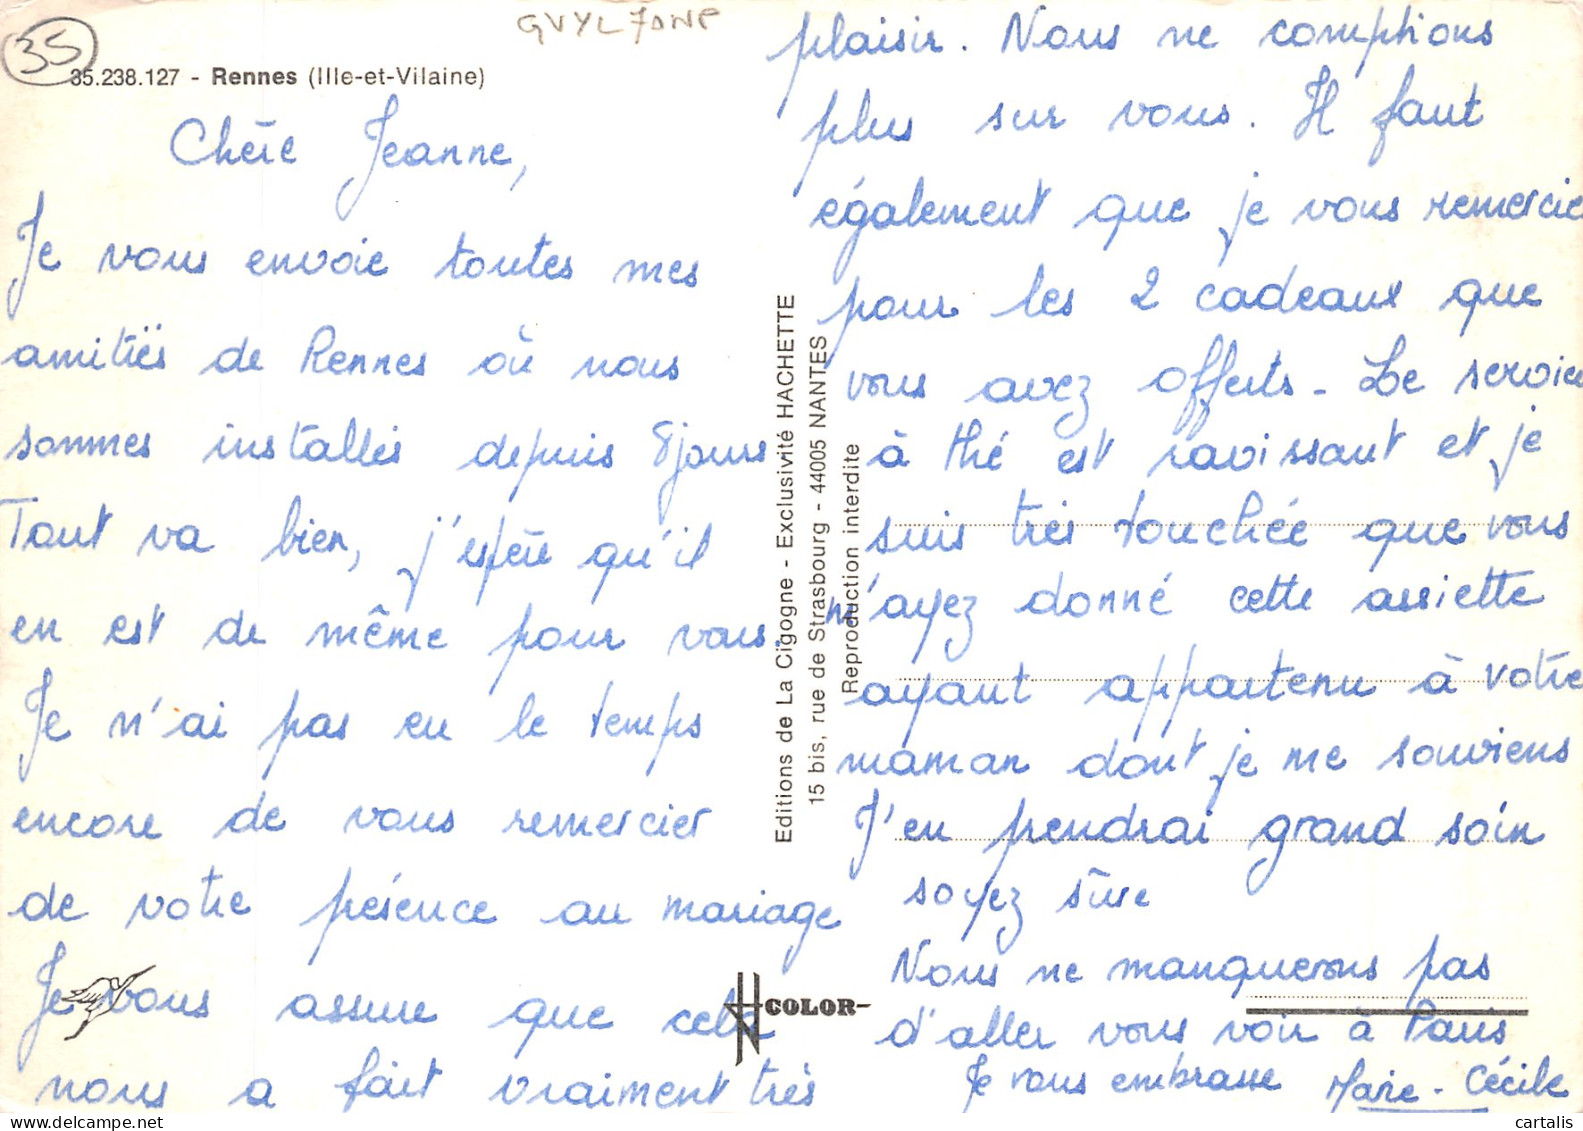 35
GVYL7DNP
35.238.127 - Rennes (Ille-et-Vilaine)
Chère Jeanne,
Je vous envoie toutes mes
amitiés de Rennes où nous
sommes installés depuis 8 jours
Tout va bien, j'espère qu'il
en est de même pour vous.
Je n'ai pas eu le temps
encore de vous remercier
de votre présence au mariage
Je vous assure que cela
nous a fait vraiment très
plaisir. Nous ne comptions
plus sur vous. Il faut
également que je vous remercie
pour les 2 cadeaux que
vous avez offerts - Le service
à thé est ravissant et je
suis très touchée que vous
m'ayez donné cette assiette
ayant appartenu à votre
maman dont je me souviens
J'en prendrai grand soin
soyez sûre
Nous ne manquerons pas
d'aller vous voir à Paris
Je vous embrasse Marie-Cécile
Editions de La Cigogne - Exclusivité HACHETTE
15 bis, rue de Strasbourg - 44005 NANTES
Reproduction interdite
COLOR
cartalis